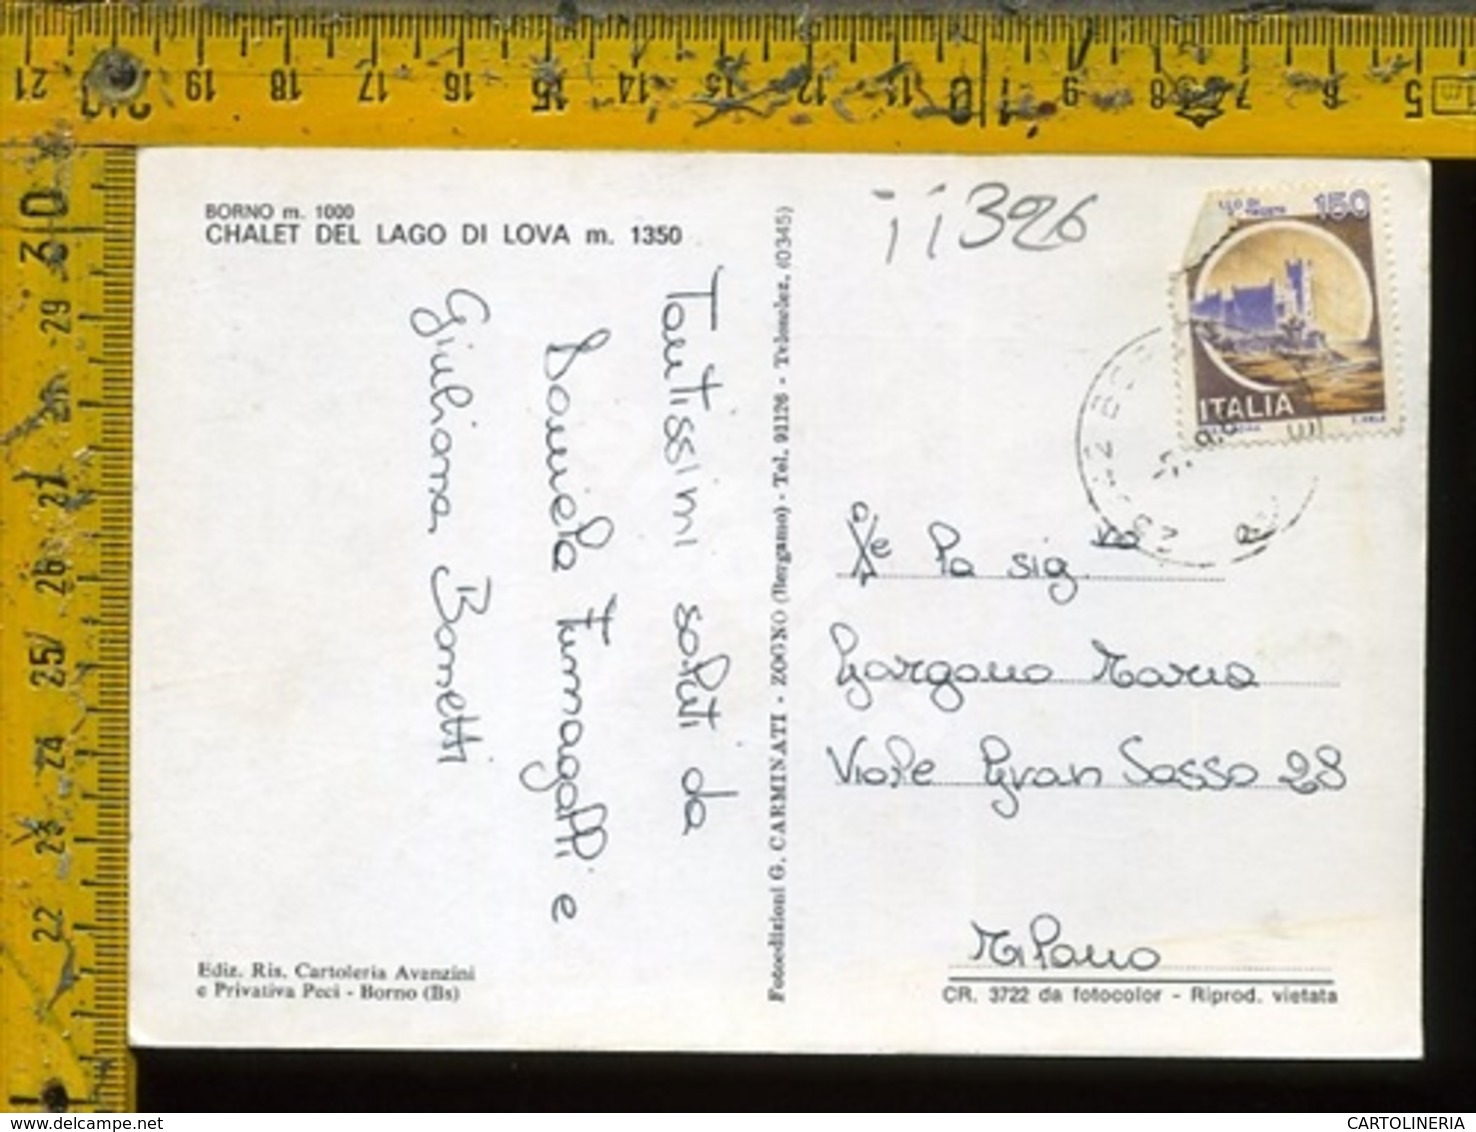 BORNO m. 1000
CHALET DEL LAGO DI LOVA m. 1350
Tantissimi saluti da
Daniela Fumagalli e
Giuliana Borretti
Ediz. Ris. Cartoleria Avanzini
e Privativa Peci - Borno (Bs)
Fotoedizioni G. CARMINATI - ZOGNO (Bergamo) - Tel. 91126 - Teleselez. (0345)
11326
150
ITALIA
la sig.na
Gargano Maria
Viale Gran Sasso 28
Milano
CR. 3722 da fotocolor - Riprod. vietata
21 19 18 17 16 15 14 13 12 11 9 8 7 6 5
30
29
28
27
26
25
24
23
22
CARTOLINERIA